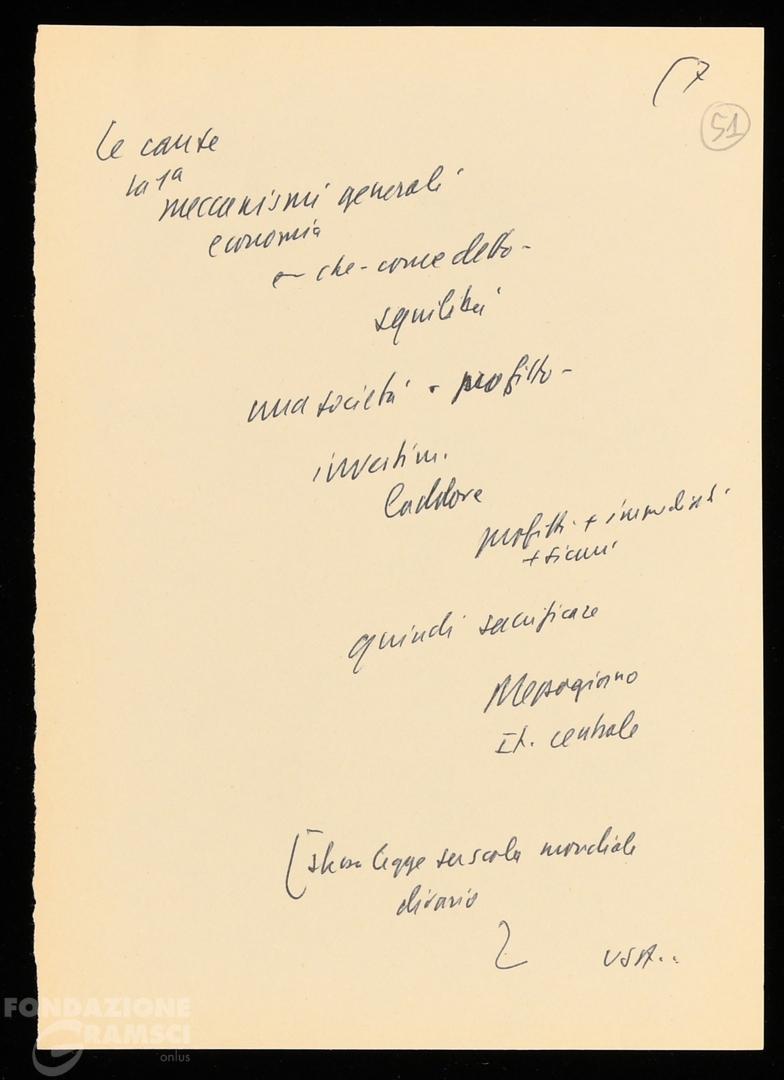 (7
51
le cause
la 1a
meccanismi generali
economia
che - come detto -
squilibri
una società - profitto -
investim.
laddove
profitti + immediati
+ sicuri
quindi sacrificare
Mezzogiorno
It. centrale
stessa legge su scala mondiale
divario
USA..
FONDAZIONE
GRAMSCI
onlus